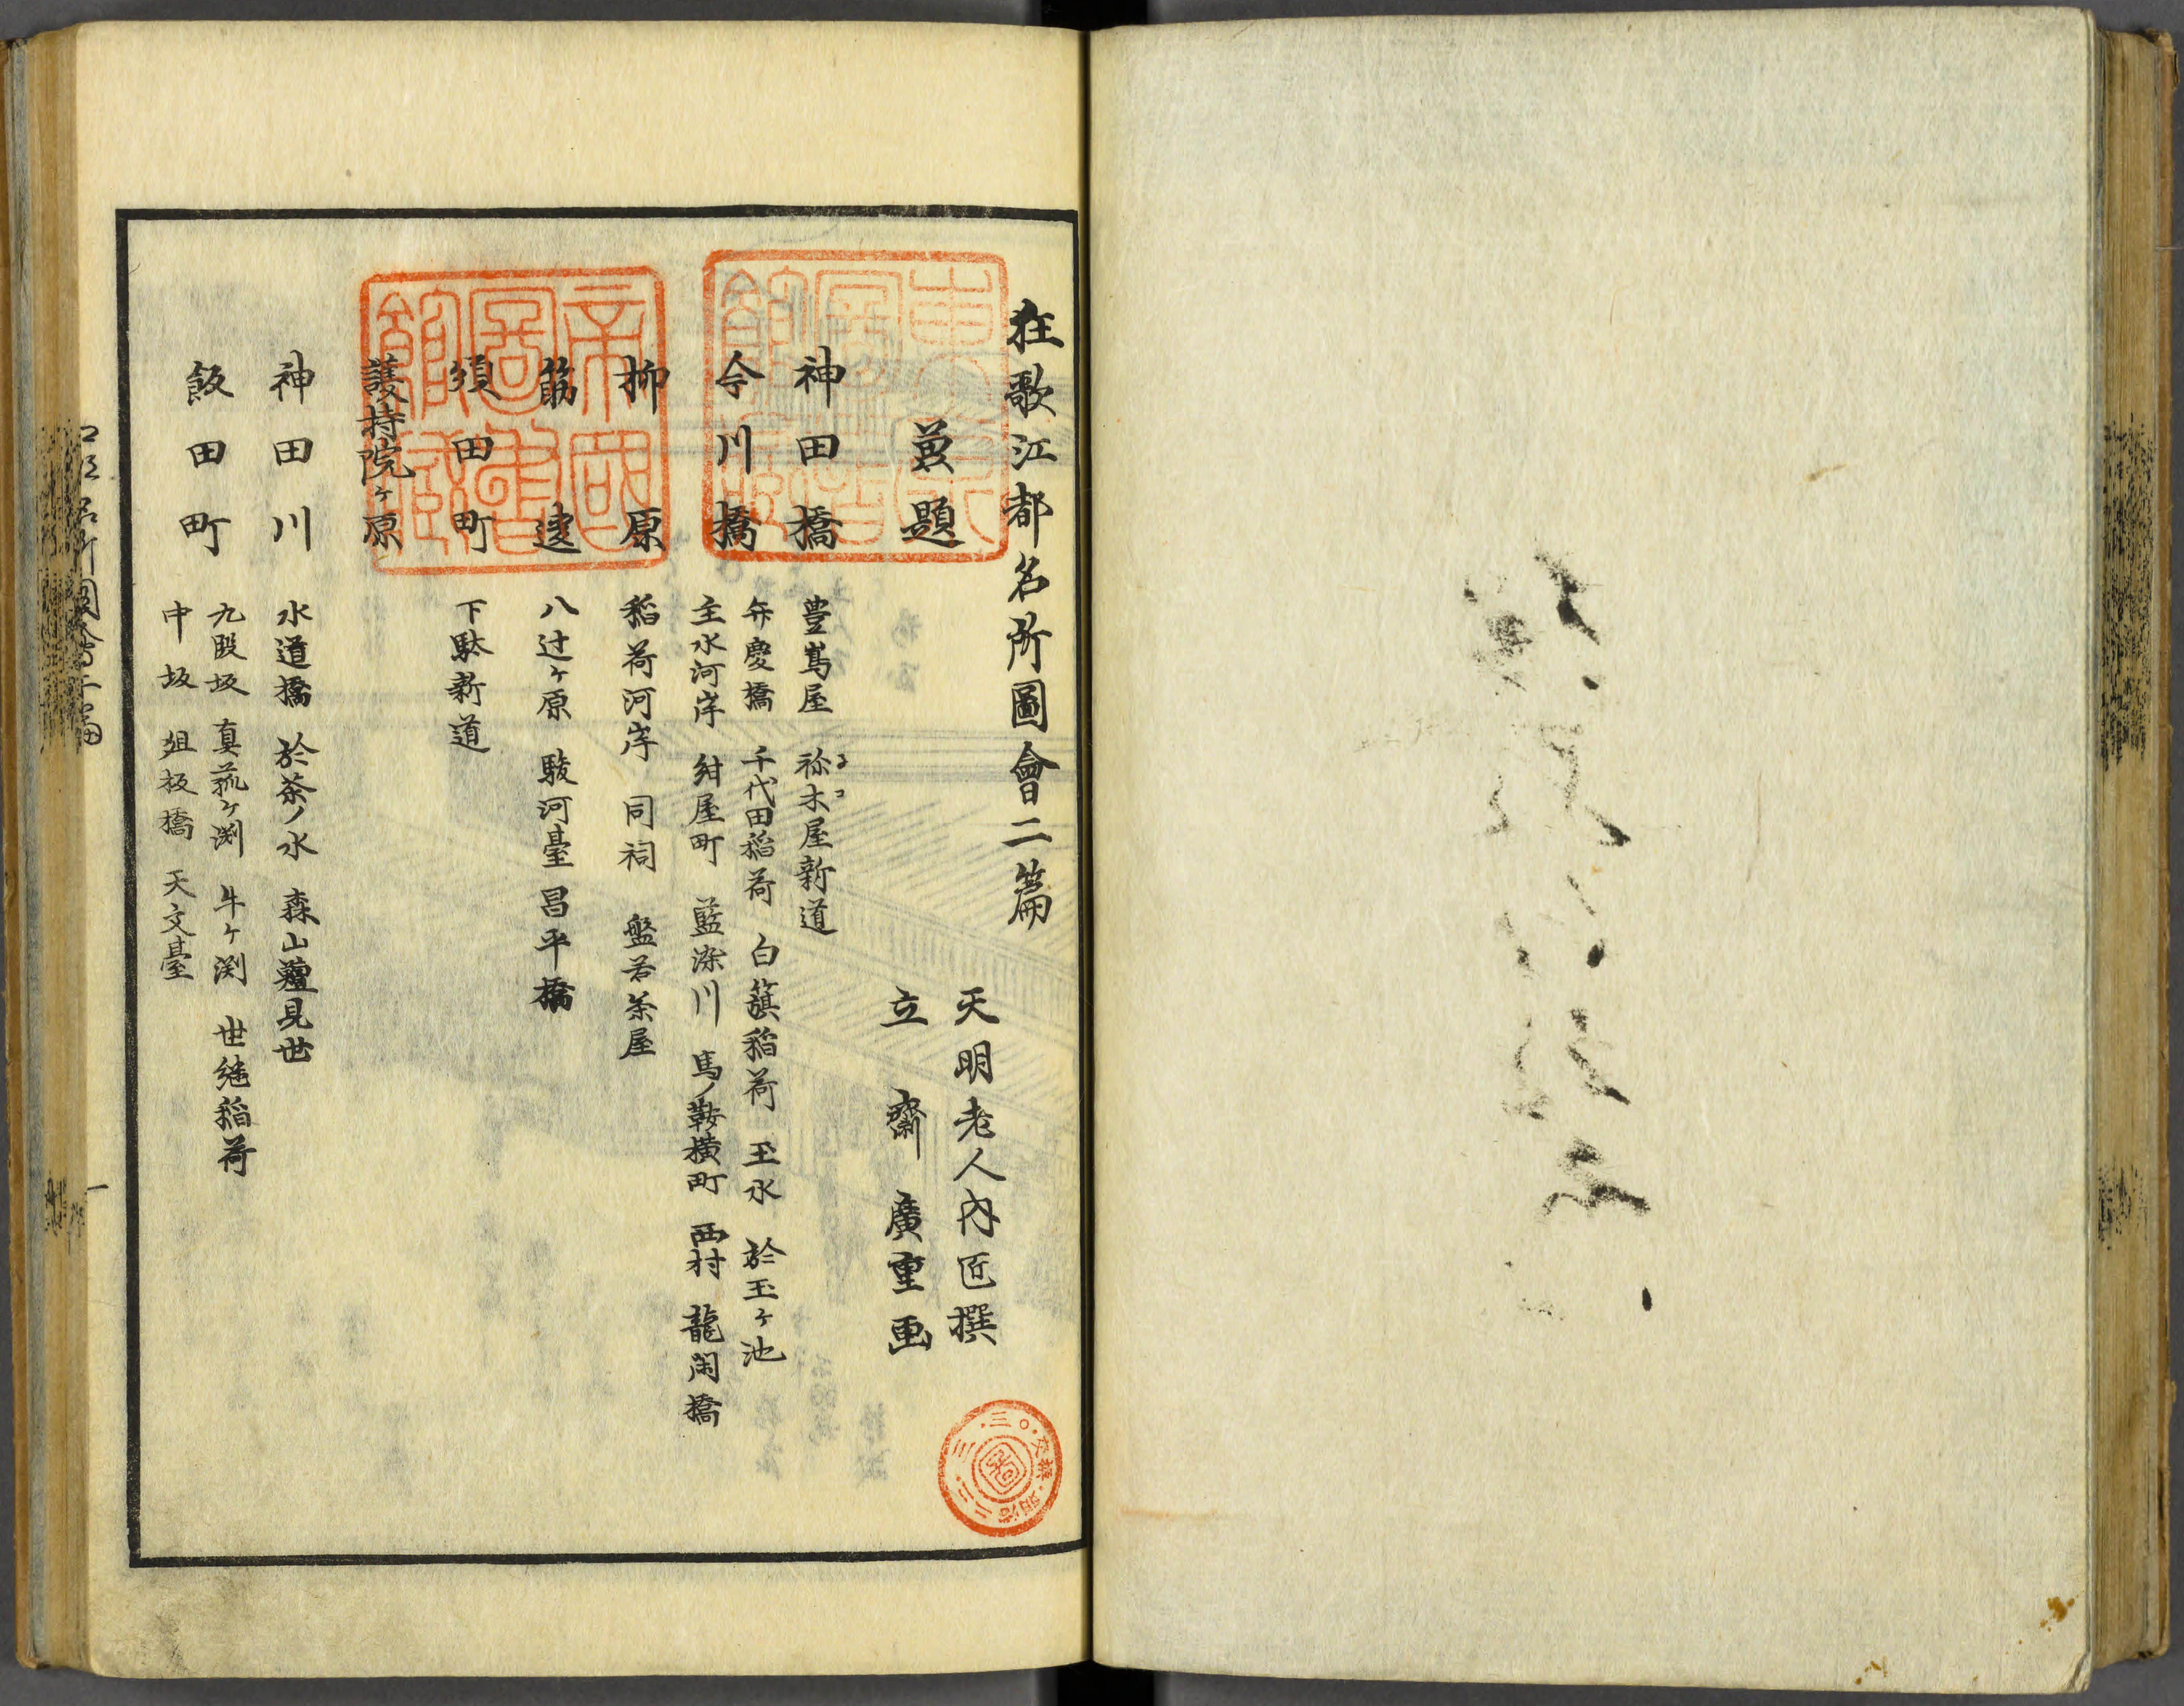 狂歌江都名所圖會二篇
天明老人内匠撰
立齋廣重画
兼題
神田橋
豊嶌屋 祢木屋新道
今川橋
弁慶橋 千代田稲荷 白籏稲荷 玉水 於玉ヶ池
主水河岸 紺屋町 藍染川 馬ノ鞍横町 西村 龍閑橋
柳原
稲荷河岸 同祠 盤若茶屋
筋違
八辻ヶ原 駿河臺 昌平橋
須田町
下駄新道
護持院ヶ原
神田川
水道橋 於茶ノ水 森山鱣見世
飯田町
九段坂 真菰ヶ渕 牛ヶ渕 世継稲荷
中坂 俎板橋 天文臺
一
帝國圖書館藏